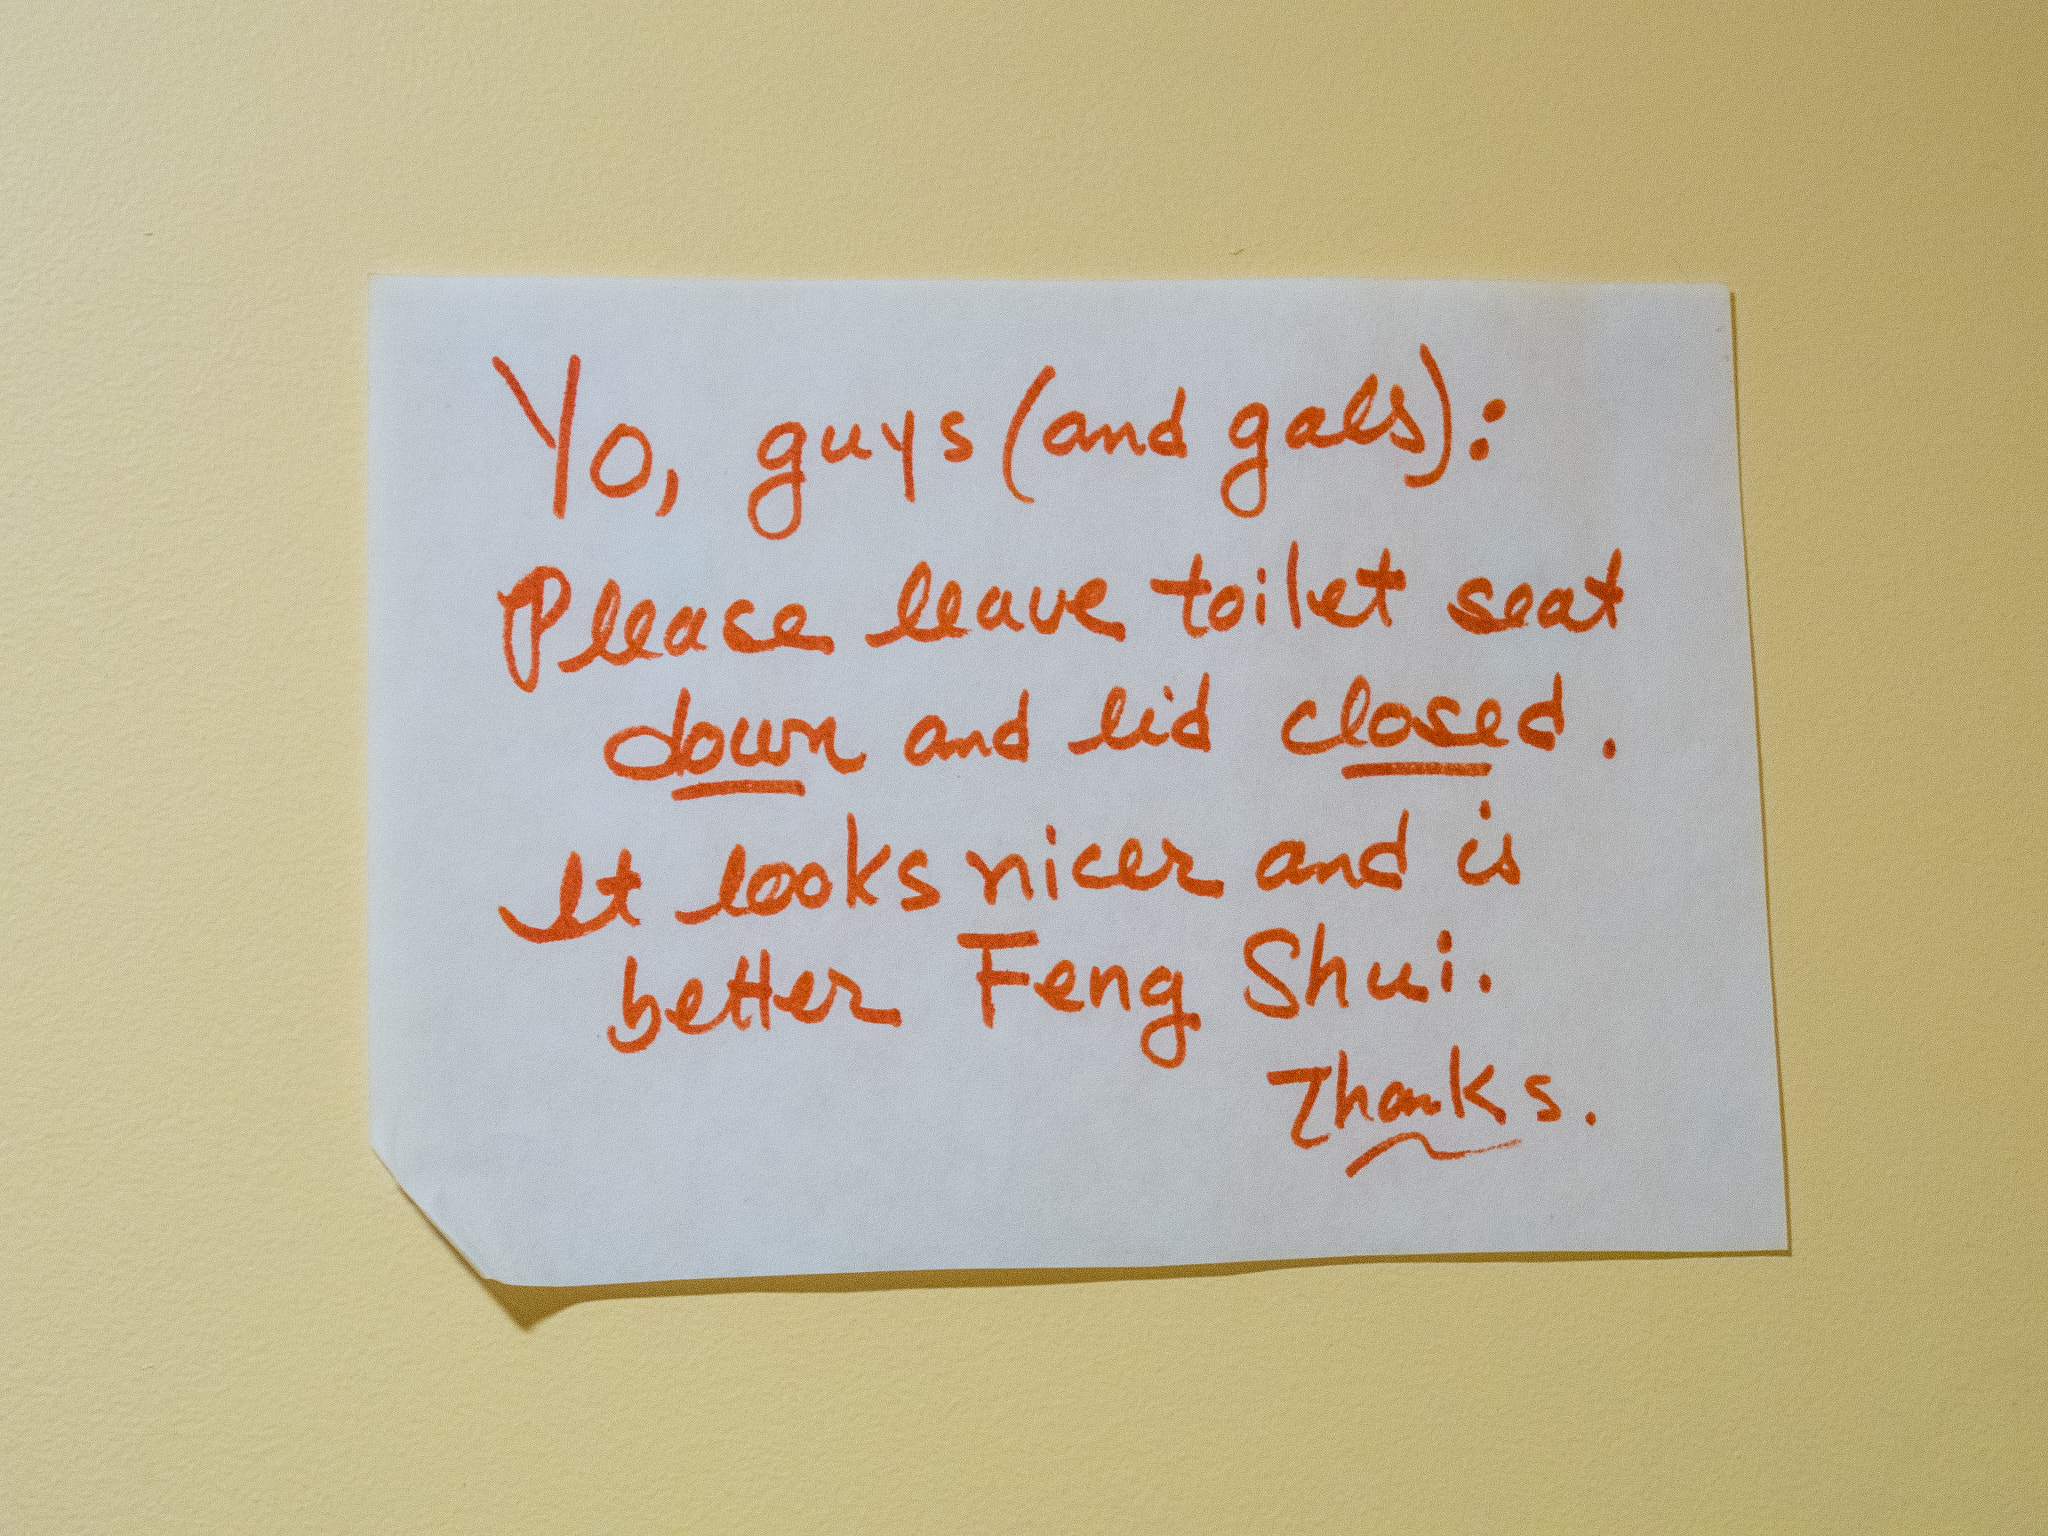 Yo, guys (and gals):
Please leave toilet seat
down and lid closed.
It looks nicer and is
better Feng Shui.
Thanks.